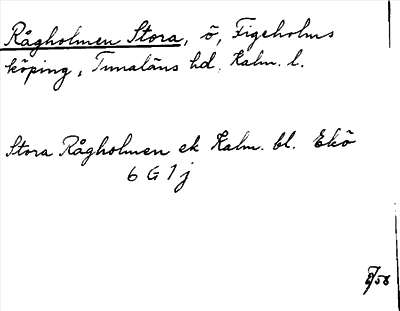 Rågholmen Stora, ö, Figeholms
köping, Tunaläns hd. Kalm. l.
Stora Rågholmen ek Kalm. bl. Ekö
6 G 1 j
8/58